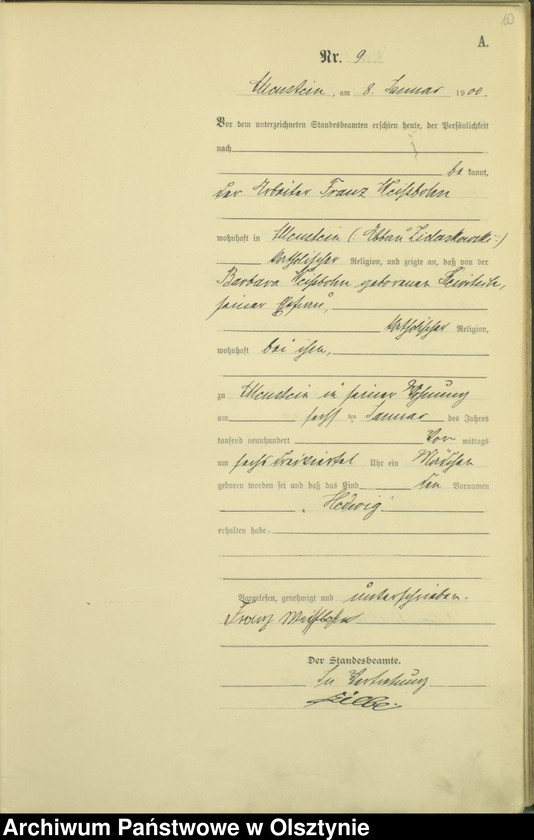 10
A.
Nr. 9
Allenstein, am 8. Januar 1900.
Vor dem unterzeichneten Standesbeamten erschien heute, der Persönlichkeit
nach
be kannt,
der Arbeiter Franz Weißbohn
wohnhaft in Allenstein
katholischer Religion, und zeigte an, daß von der
Barbara Weißbohn geborenen
seiner Ehefrau,
katholischer Religion,
wohnhaft bei ihm,
zu Allenstein in seiner Wohnung
am sechsten Januar des Jahres
tausend neunhundert Vor mittags
um sechs dreiviertel Uhr ein Mädchen
geboren worden sei und daß das Kind den Vornamen
Hedwig
erhalten habe.
Vorgelesen, genehmigt und unterschrieben.
Franz
Der Standesbeamte.
In Vertretung
Archiwum Państwowe w Olsztynie